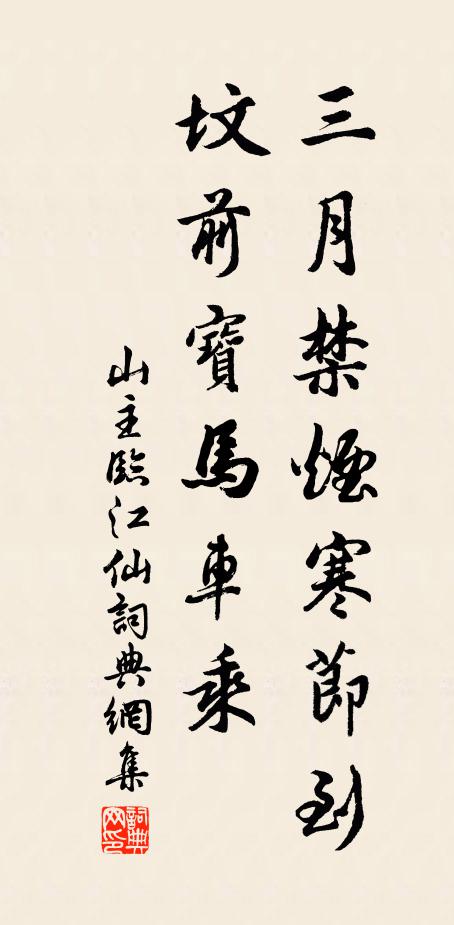 三月禁煙寒節到
墳前寶馬車乘
山主臨江仙詞典網集
詞典网印